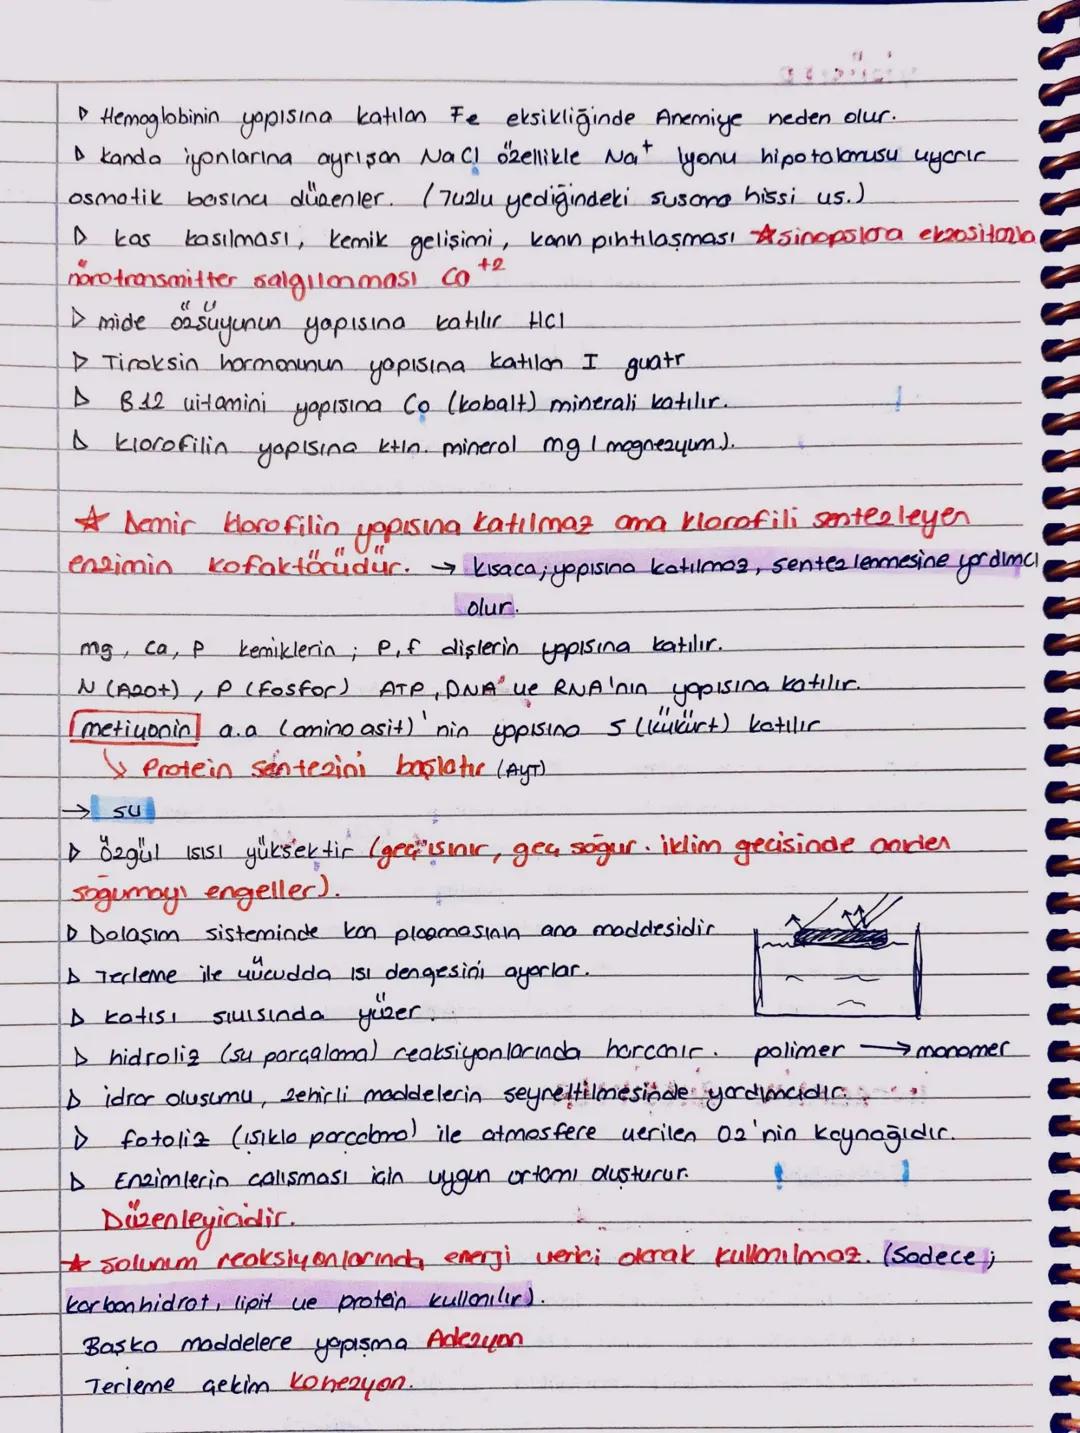 ▷ Hemoglobinin yapısına katılan Fe eksikliğinde Anemiye neden olur.
▷ kanda iyonlarına ayrışan NaCl özellikle Na⁺ İyonu hipotalamusu uyarır
osmotik basıncı düzenler. (Tuzlu yediğindeki susama hissi vs.)
▷ kas kasılması, kemik gelişimi, kanın pıhtılaşması ☆sinapslara ekzositozla
nörotransmitter salgılanması Ca⁺²
▷ mide özsuyunun yapısına katılır HCl
▷ Tiroksin hormonunun yapısına katılan I guatr
▷ B12 vitamini yapısına Co (kobalt) minerali katılır.
▷ klorofilin yapısına ktln. mineral mg (magnezyum).
☆ Demir klorofilin yapısına katılmaz ama klorofili sentezleyen
enzimin kofaktörüdür. → kısaca; yapısına katılmaz, sentezlenmesine yardımcı
olur.
mg, Ca, P kemiklerin ; P, f dişlerin yapısına katılır.
N (Azot), P (fosfor) ATP, DNA ve RNA'nın yapısına katılır.
metiyonin a.a (amino asit)'nin yapısına S (kükürt) katılır
↳ Protein sentezini başlatır (AYT)
→ su
▷ Özgül ısısı yüksektir (geç ısınır, geç soğur. iklim geçisinde aniden
soğumayı engeller).
▷ Dolaşım sisteminde kan plazmasının ana maddesidir
▷ Terleme ile vücudda ısı dengesini ayarlar.
▷ katısı sıvısında yüzer.
▷ hidroliz (su parçalama) reaksiyonlarında harcanır. polimer → monomer
▷ idrar oluşumu, zehirli maddelerin seyreltilmesinde yardımcıdır.
▷ fotoliz (ışıkla parçalama) ile atmosfere verilen O2'nin kaynağıdır.
▷ Enzimlerin calışması için uygun ortamı oluşturur.
Düzenleyicidir.
☆ solunum reaksiyonlarında energi verici olarak kullanılmaz. (Sadece ;
karbonhidrat, lipit ve protein kullanılır).
Başka maddelere yapışma Adezyon
Terleme çekim Kohezyon.